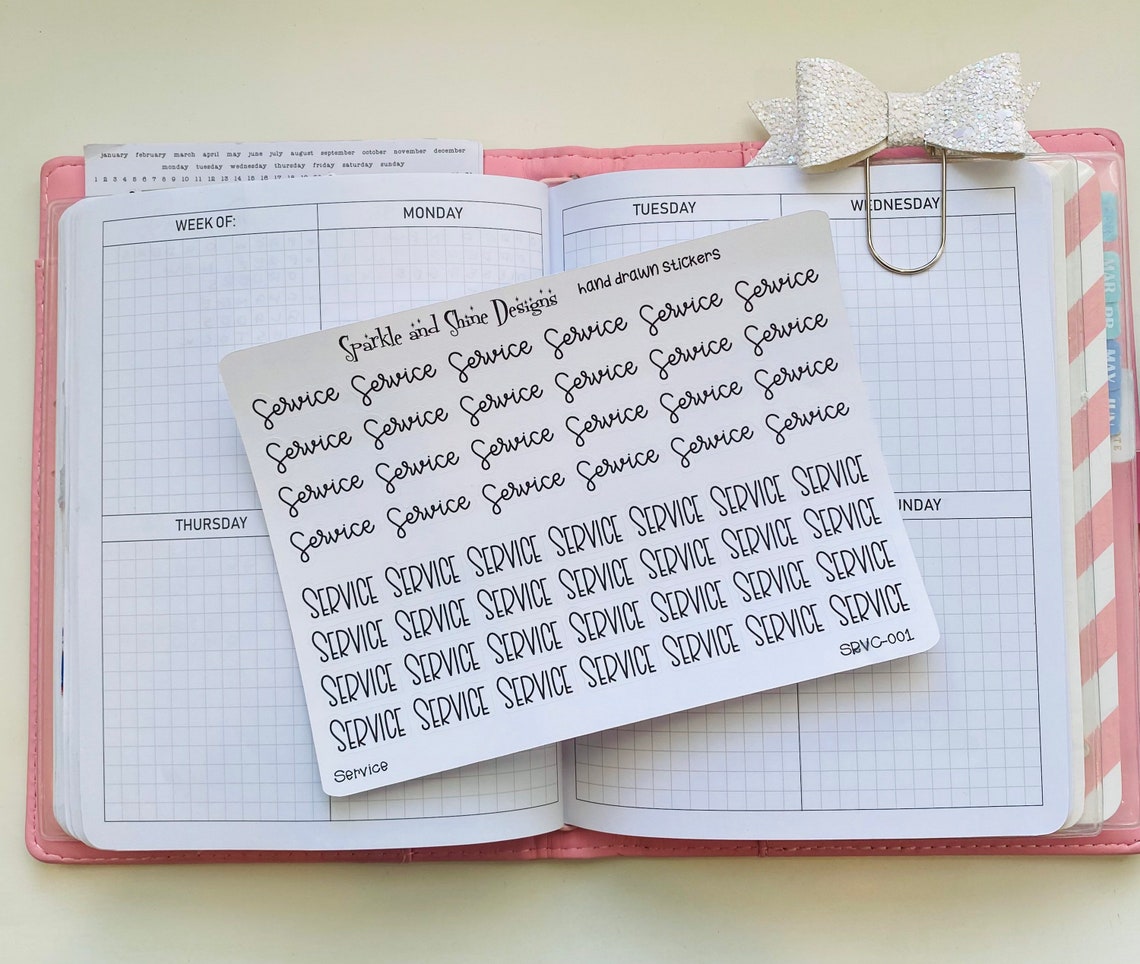 january february march april may june july august september october november december
monday tuesday wednesday thursday friday saturday sunday
1 2 3 4 5 6 7 8 9 10 11 12 13 14 15 16 17 18
WEEK OF: MONDAY TUESDAY WEDNESDAY
Sparkle and Shine Designs hand drawn stickers
Service Service Service Service Service Service
Service Service Service Service Service Service
Service Service Service Service Service Service
Service Service Service Service Service Service
SERVICE SERVICE SERVICE SERVICE SERVICE SERVICE SERVICE
SERVICE SERVICE SERVICE SERVICE SERVICE SERVICE SERVICE
SERVICE SERVICE SERVICE SERVICE SERVICE SERVICE SERVICE
SERVICE SERVICE SERVICE SERVICE SERVICE SERVICE SERVICE
Service SRVC-001
THURSDAY UNDAY
MAR
MAY